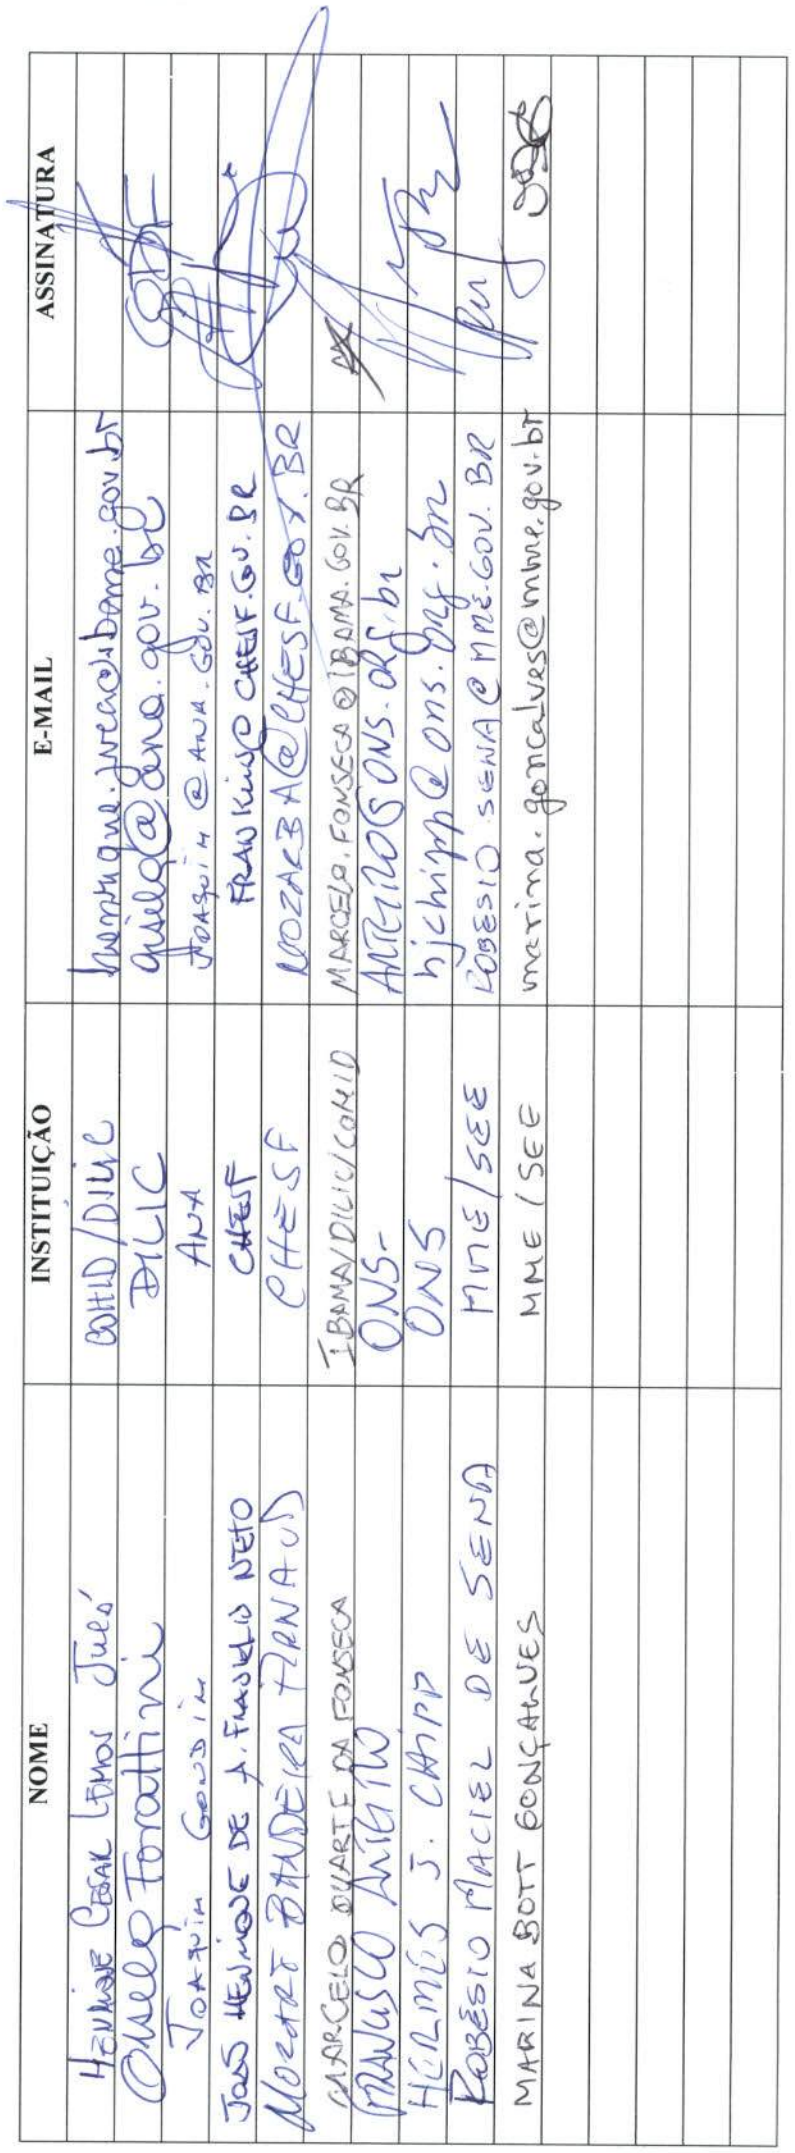 NOME INSTITUIÇÃO E-MAIL ASSINATURA
HENRIQUE CESAR LEMOS JUCÁ COHID/DILIC
Gisela Forattini DILIC gisela@ana.gov.br
JOAQUIM GONDIM ANA JOAQUIM@ANA.GOV.BR
JOÃO HENRIQUE DE A. FRANKLIN NETO CHESF
MOZART BANDEIRA ARNAUD CHESF MOZARBA@CHESF.GOV.BR
MARCELO DUARTE DA FONSECA IBAMA/DILIC/COHID MARCELO.FONSECA@IBAMA.GOV.BR
ONS-
HERMES J. CHIPP ONS hjchipp@ons.org.br
ROBÉSIO MACIEL DE SENA MME/SEE ROBESIO.SENA@MME.GOV.BR
MARINA BOTT GONÇALVES MME/SEE marina.goncalves@mme.gov.br